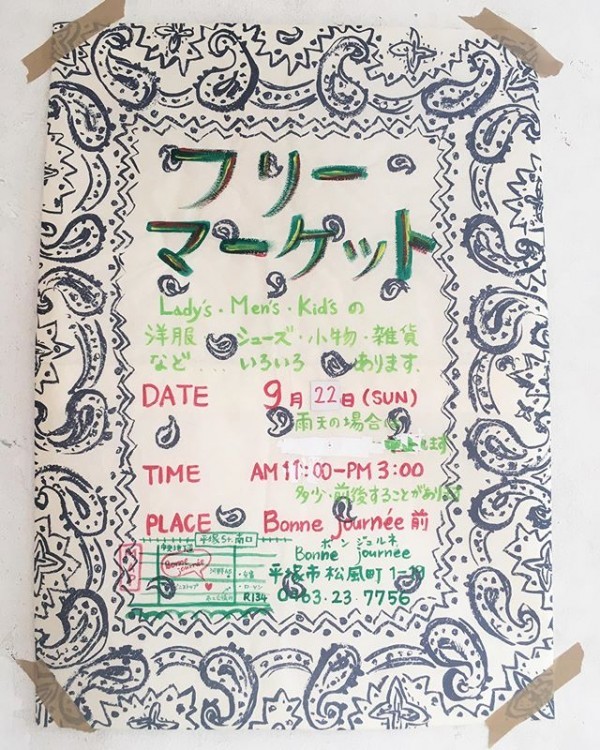 フリー
マーケット
Lady's・Men's・Kid'sの
洋服・シューズ・小物・雑貨
など....いろいろあります.
DATE 9月22日(SUN)
雨天の場合
中止します
TIME AM11:00-PM3:00
多少・前後することがあります
PLACE Bonne journée前
ボンジュルネ
Bonne journée
平塚市松風町1-19
0463.23.7756
MAP
平塚St.南口
Bonne journée
R134